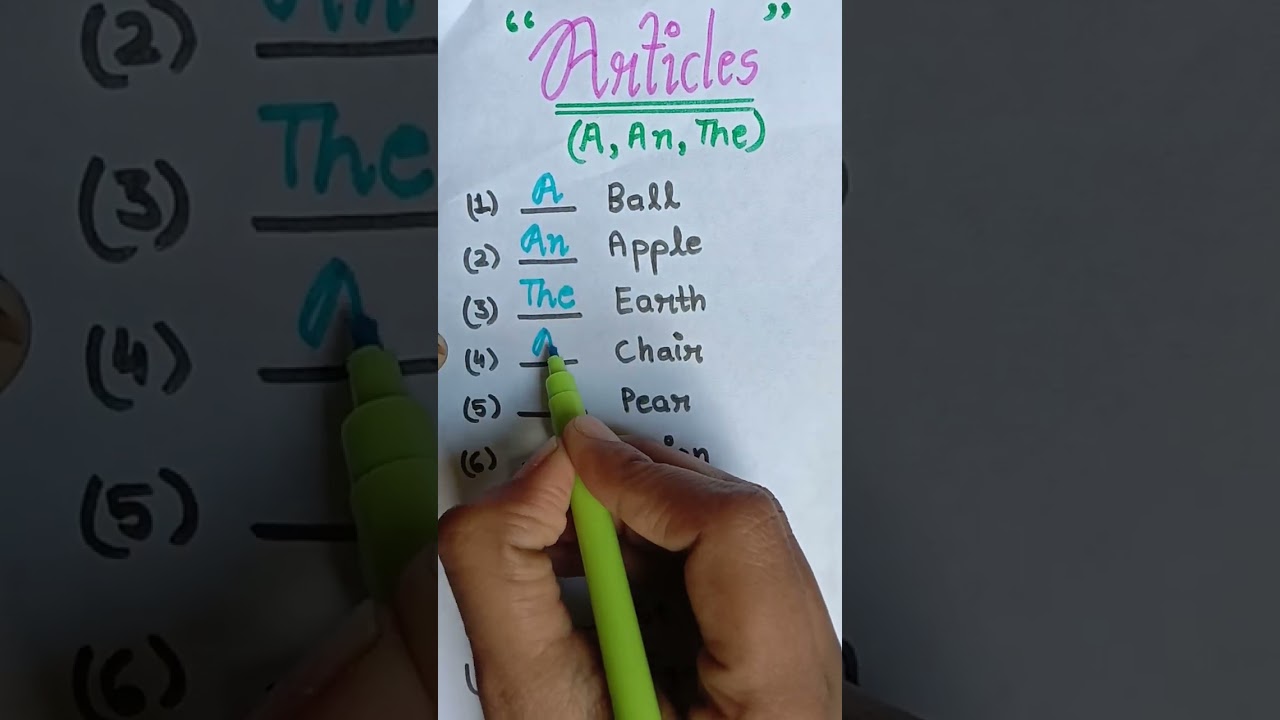 “Articles”
(A, An, The)
(1) A Ball
(2) An Apple
(3) The Earth
(4) A Chair
(5) Pear
(6)